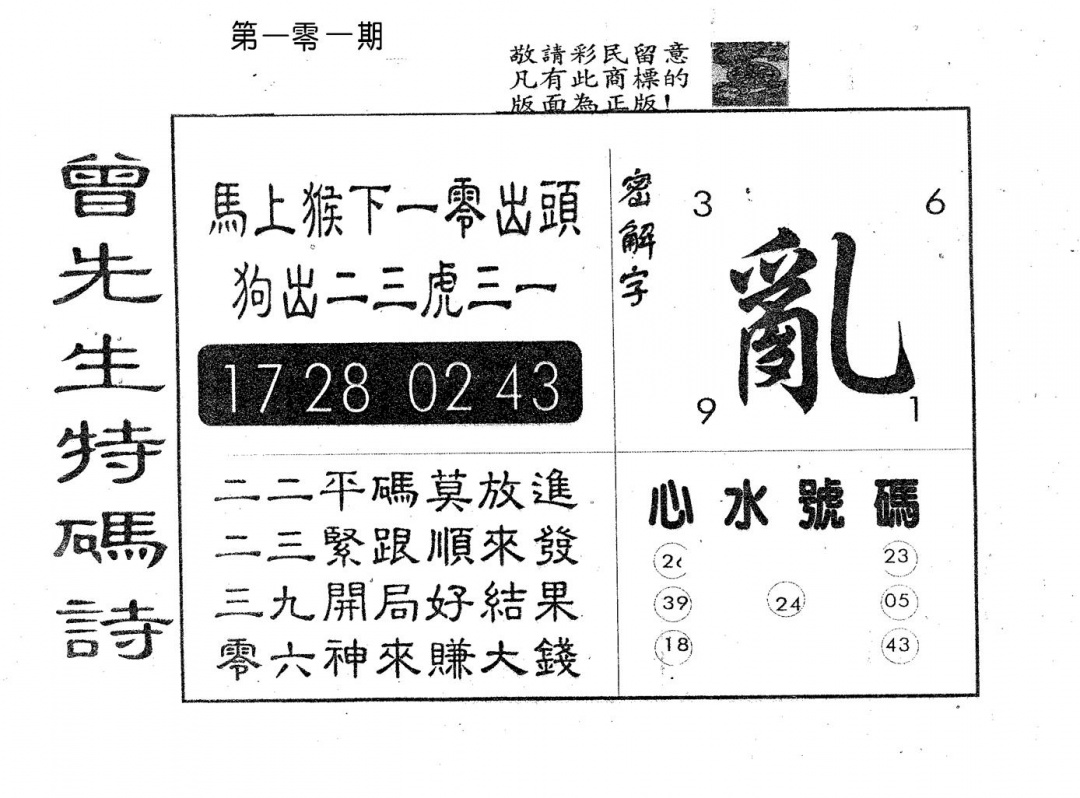 第一零一期
敬請彩民留意
凡有此商標的
版面為正版！
曾先生特碼詩
馬上猴下一零出頭
狗出二三虎三一
17 28 02 43
二二平碼莫放進
二三緊跟順來發
三九開局好結果
零六神來賺大錢
密解字
3 6
亂
9 1
心水號碼
26 23
39 24 05
18 43